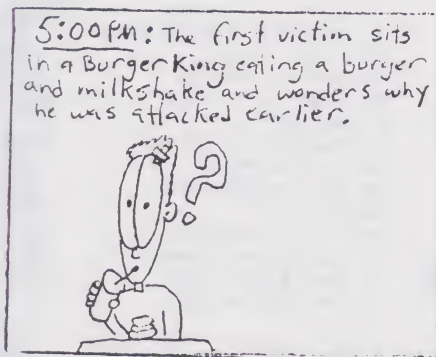 5:00 PM: The first victim sits
in a Burger King eating a burger
and milkshake and wonders why
he was attacked earlier.
?